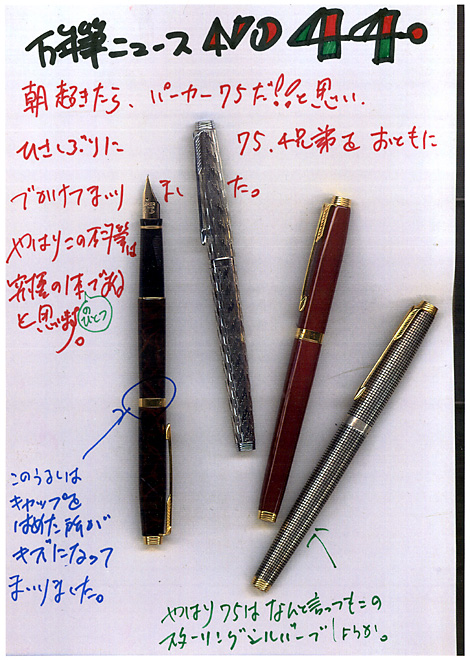 万年筆ニュース NO 44.
朝起きたら、パーカー75だ!!と思い、
ひさしぶりに 75.4兄弟をおともに
でかけてまいりました。
やはりこの万年筆は
究極の1本である
のひとつ
と思います。
このうるしは
キャップを
はめた所が
キズになって
まいりました。
やはり75はなんと言ってもこの
スターリングシルバーでしょうか。